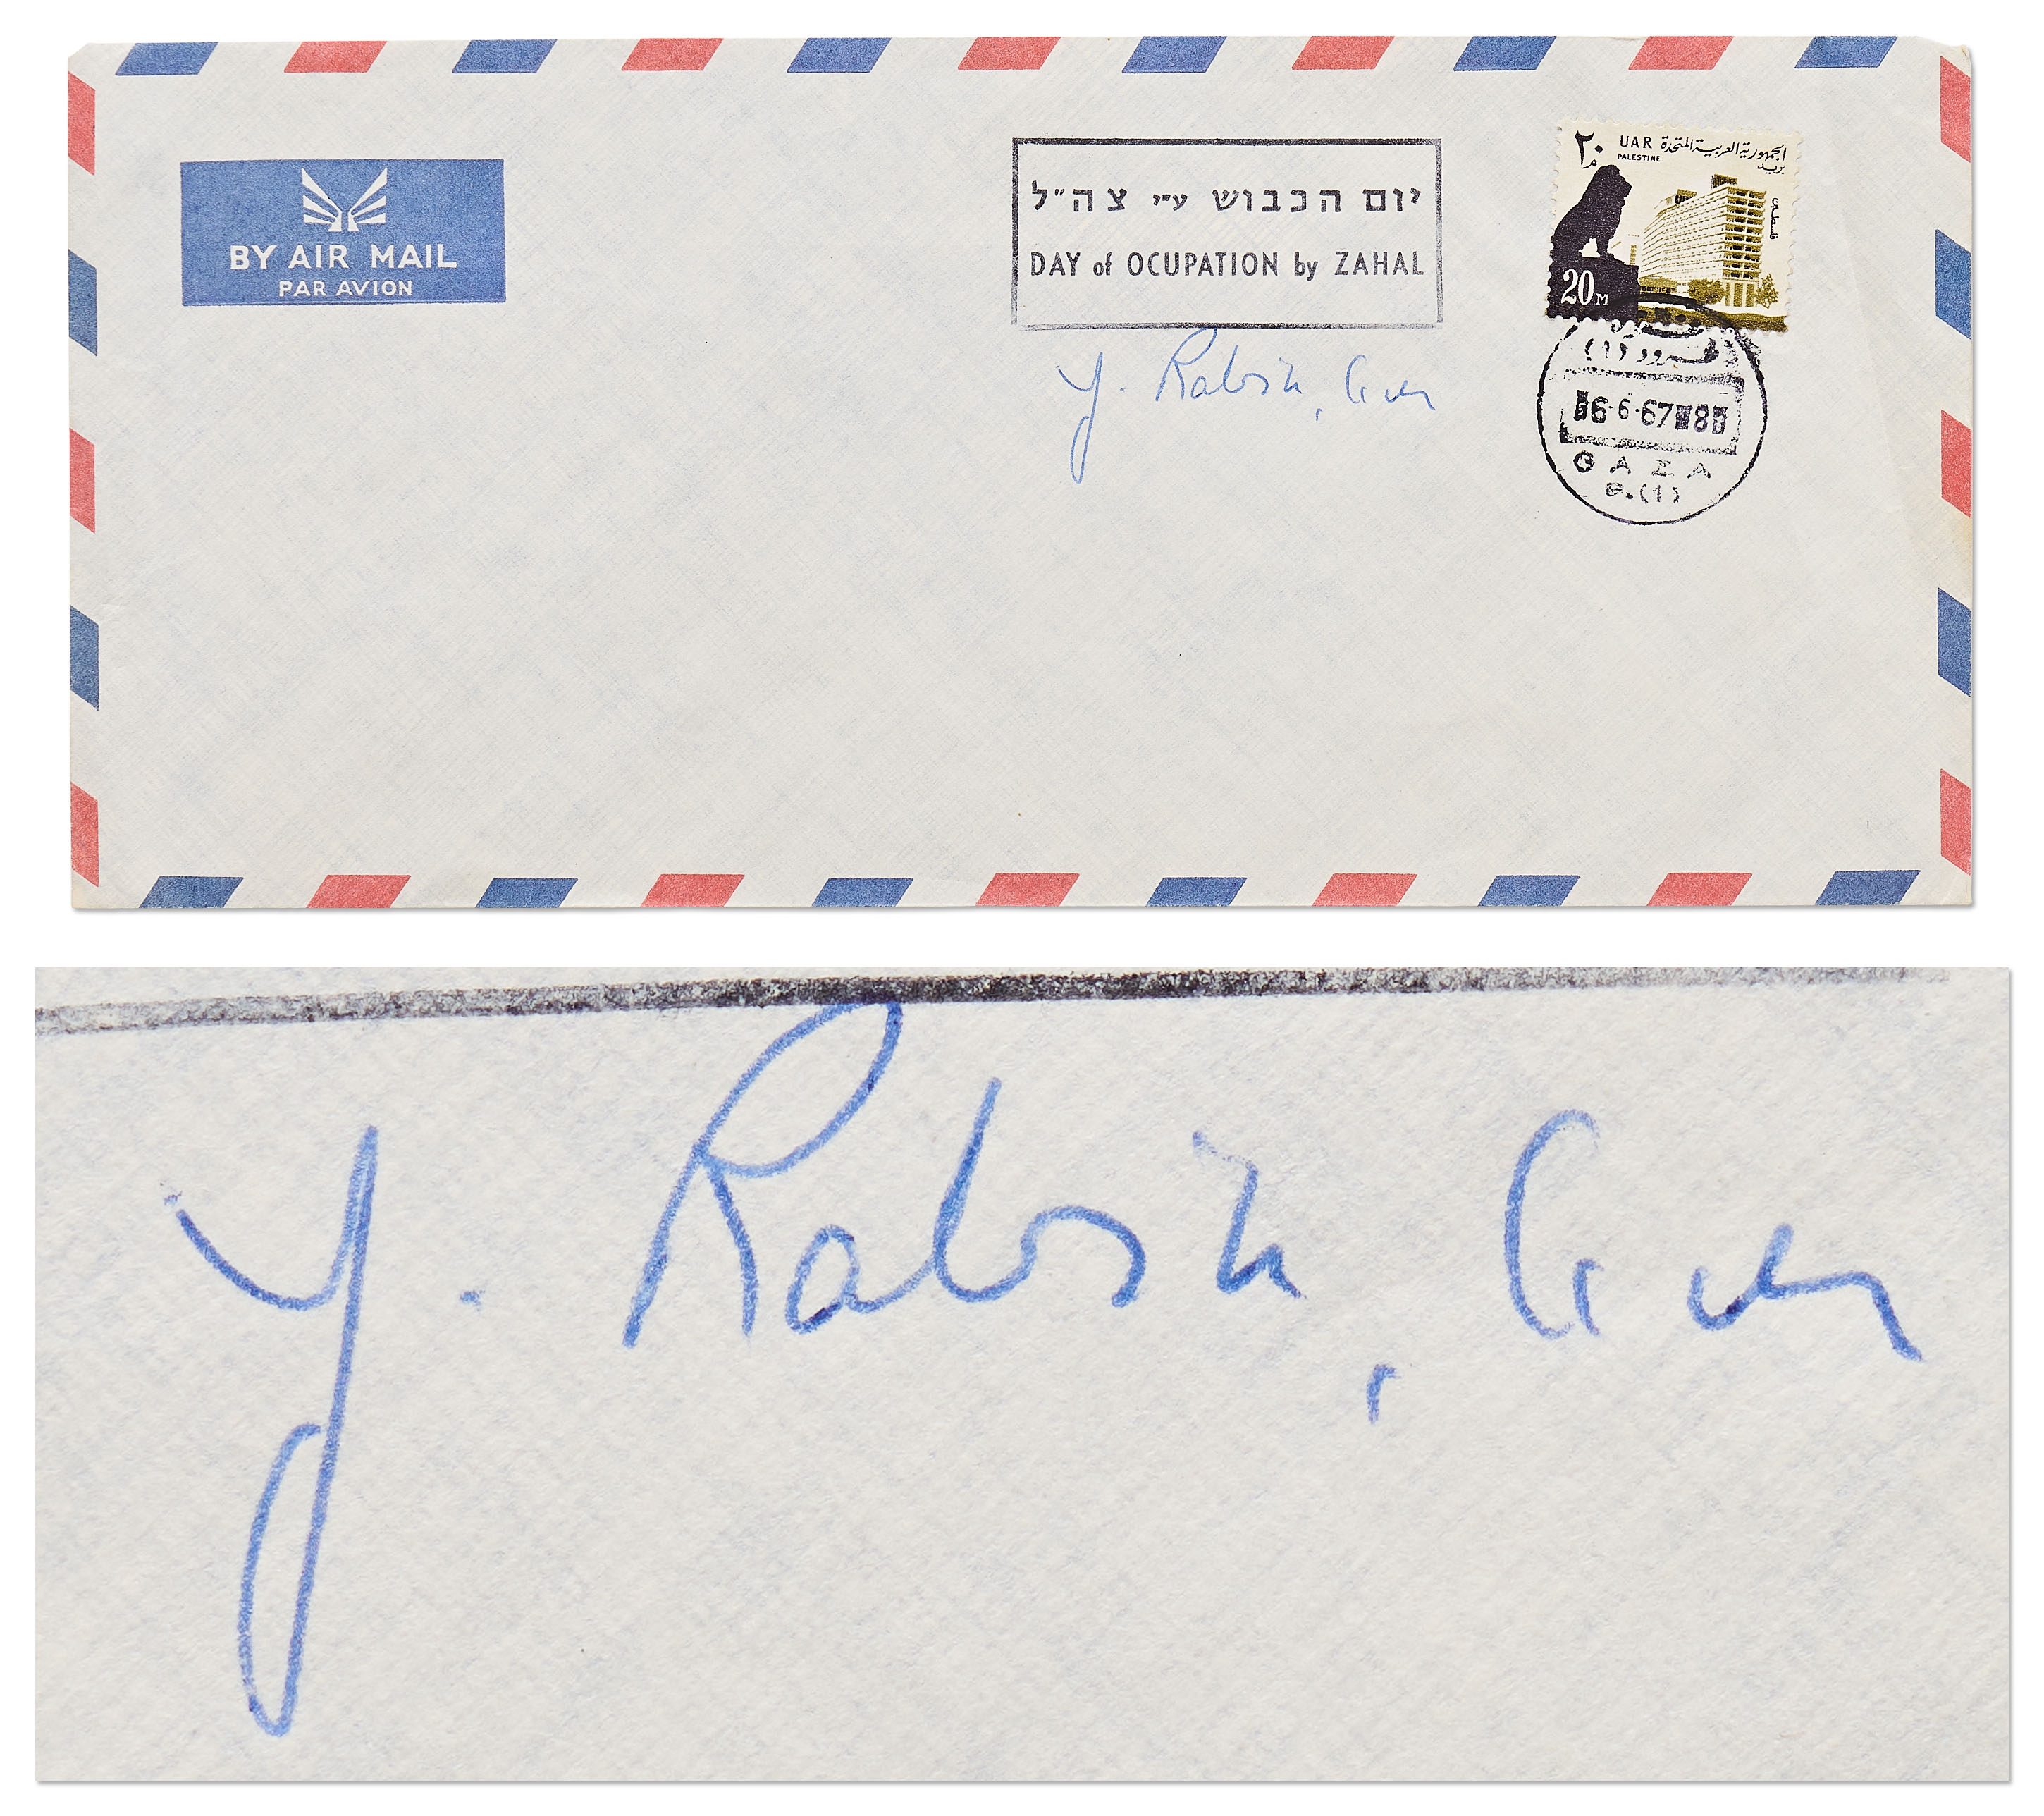 BY AIR MAIL
PAR AVION
יום הכבוש ע״י צה״ל
DAY of OCUPATION by ZAHAL
٢٠م
UAR الجمهورية العربية المتحدة
PALESTINE
بريد
فلسطين
20 M
Y. Rabin,
(١)
6-6-67 8
GAZA
(1)
Y. Rabin,